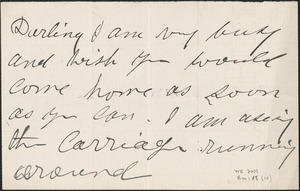 Darling I am very busy
and wish you would
come home as soon
as you can. I am
the carriage running
around